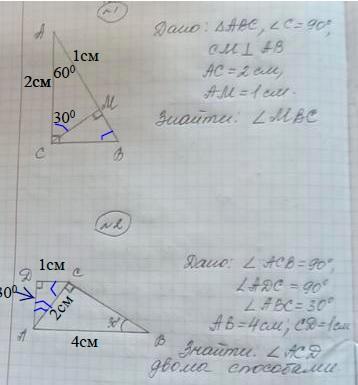 №1
A
1см
60⁰
2см
M
30⁰
C
B
Дано: ΔABC, ∠C=90°,
CM⊥AB
AC=2см,
AM=1см.
Знайти: ∠MBC
№2
1см
D
C
30⁰
2см
A
4см
30°
B
Дано: ∠ACB=90°,
∠ADC=90°
∠ABC=30°
AB=4см, CD=1см
Знайти: ∠ACD
двома способами